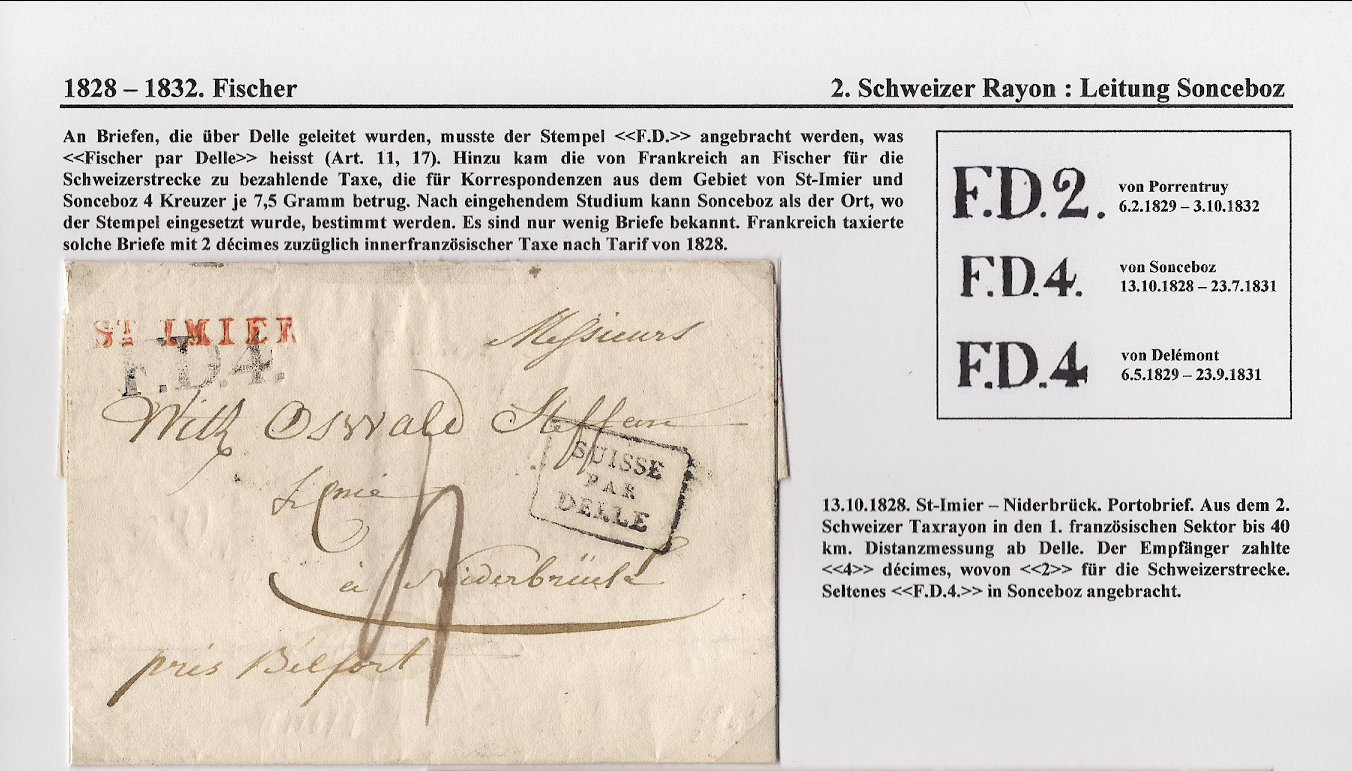 1828 – 1832. Fischer
2. Schweizer Rayon : Leitung Sonceboz
An Briefen, die über Delle geleitet wurden, musste der Stempel <<F.D.>> angebracht werden, was
<<Fischer par Delle>> heisst (Art. 11, 17). Hinzu kam die von Frankreich an Fischer für die
Schweizerstrecke zu bezahlende Taxe, die für Korrespondenzen aus dem Gebiet von St-Imier und
Sonceboz 4 Kreuzer je 7,5 Gramm betrug. Nach eingehendem Studium kann Sonceboz als der Ort, wo
der Stempel eingesetzt wurde, bestimmt werden. Es sind nur wenig Briefe bekannt. Frankreich taxierte
solche Briefe mit 2 décimes zuzüglich innerfranzösischer Taxe nach Tarif von 1828.
F.D.2.
von Porrentruy
6.2.1829 – 3.10.1832
F.D.4.
von Sonceboz
13.10.1828 – 23.7.1831
F.D.4
von Delémont
6.5.1829 – 23.9.1831
ST IMIER
F.D.4.
Messieurs
Oswald Steffan
SUISSE
PAR
DELLE
à Niderbrück
près Bélfort
13.10.1828. St-Imier – Niderbrück. Portobrief. Aus dem 2.
Schweizer Taxrayon in den 1. französischen Sektor bis 40
km. Distanzmessung ab Delle. Der Empfänger zahlte
<<4>> décimes, wovon <<2>> für die Schweizerstrecke.
Seltenes <<F.D.4.>> in Sonceboz angebracht.